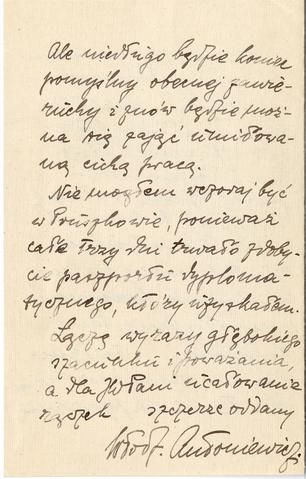 Ale niedługo będzie koniec
pomyślny obecnej zawie-
ruchy i znów będzie moż-
na się zająć umiłowa-
ną cichą pracą.
Nie mogłem wczoraj być
w Pruszkowie, ponieważ
całe trzy dni trwało zdoby-
cie paszportu dyploma-
tycznego, który uzyskałem.
Łączę wyrazy głębokiego
szacunku i poważania,
a dla JWPani ucałowania
rączek szczerze oddany
Włodz. Antoniewicz.